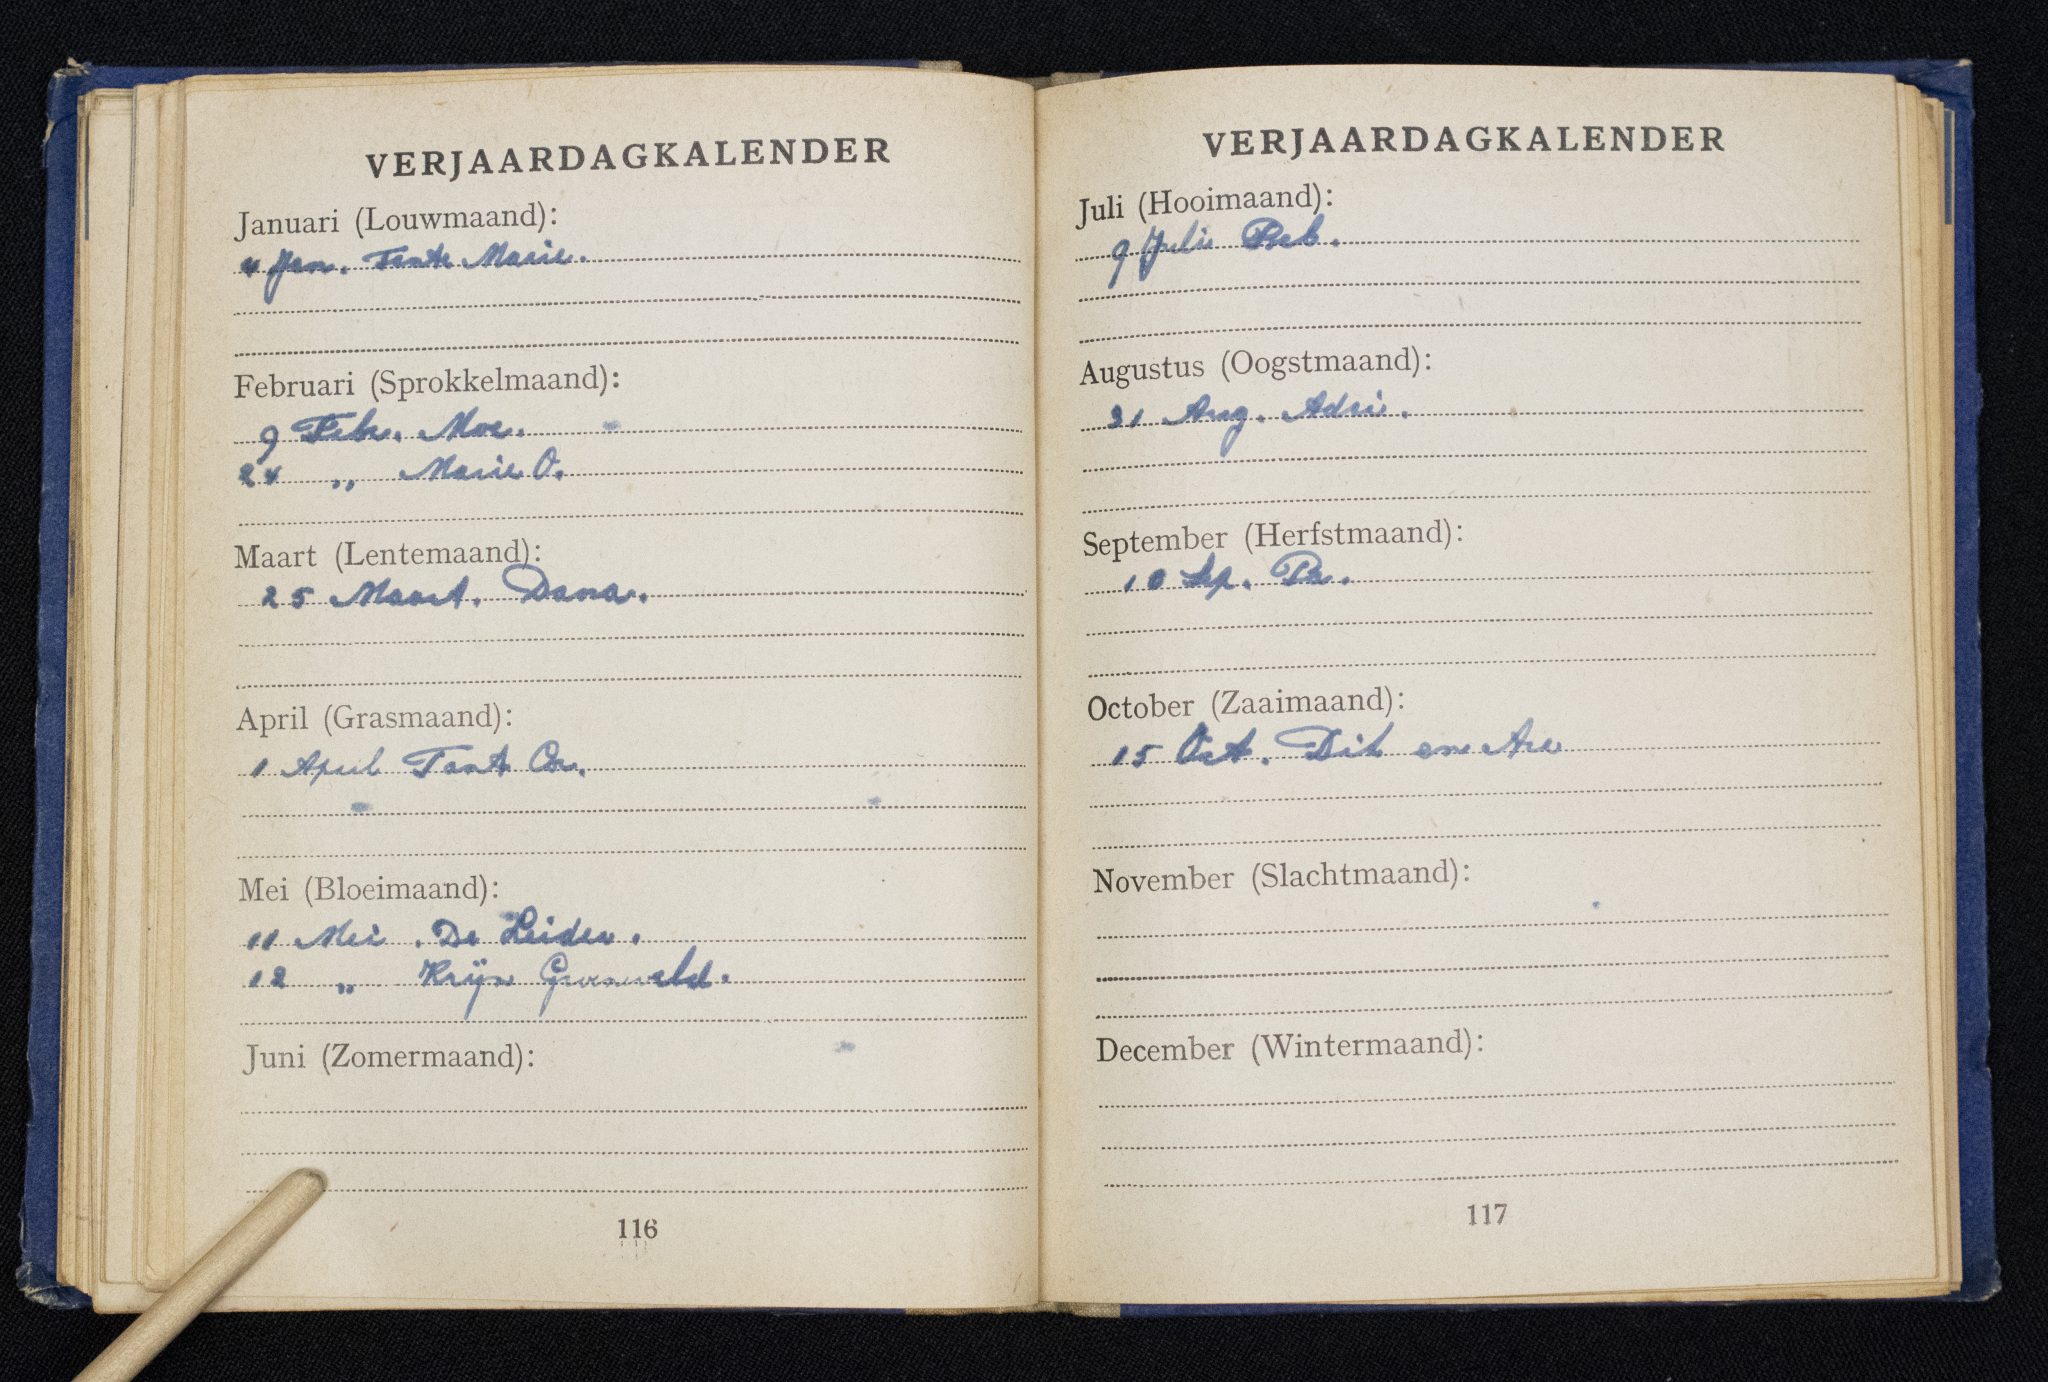 VERJAARDAGKALENDER
Januari (Louwmaand):
4 Jan. Tante Marie.
Februari (Sprokkelmaand):
9 Febr. Moe.
24 „ Marie O.
Maart (Lentemaand):
25 Maart. Dana.
April (Grasmaand):
1 April Tante Co.
Mei (Bloeimaand):
11 Mei. De Leider.
12 „ Krijn Groeneveld.
Juni (Zomermaand):
116
VERJAARDAGKALENDER
Juli (Hooimaand):
9 Juli Beb.
Augustus (Oogstmaand):
21 Aug. Adri.
September (Herfstmaand):
10 Sep. Pa.
October (Zaaimaand):
15 Oct. Dit en Are
November (Slachtmaand):
December (Wintermaand):
117